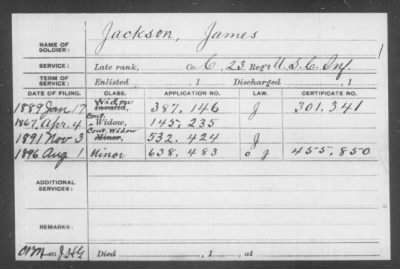 Jackson, James
NAME OF SOLDIER:
SERVICE: Late rank, Co. C, 23 Reg't U.S.C. Inf.
TERM OF SERVICE: Enlisted , 1 Discharged , 1
DATE OF FILING. CLASS. APPLICATION NO. LAW. CERTIFICATE NO.
Widow
1889 Jan 17 Invalid, 387.146 J 301.341
Cont.
1867, Apr. 4 Widow, 145.235
Cont. Widow
1891 Nov 3 Minor, 532.424 J
1896 Aug 1 Minor 638.483 J 455.850
ADDITIONAL SERVICES:
REMARKS:
Died , 1 , at